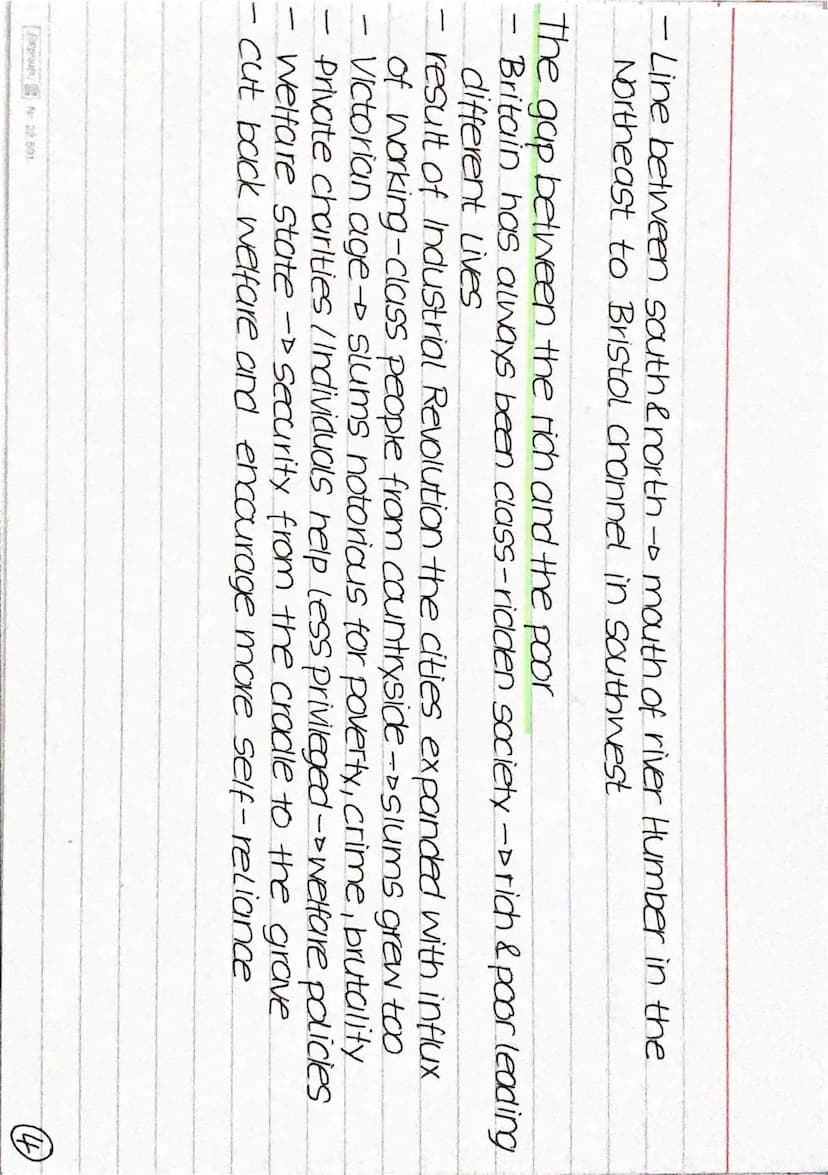 - Line between south & north → mouth of river Humber in the
Northeast to Bristol channel in Southwest
The gap between the rich and the poor
- Britain has always been class-ridden society → rich & poor leading
different lives
- result of Industrial Revolution the cities expanded with influx
of working-class people from countryside → slums grew too
- Victorian age → slums notorious for poverty, crime, brutality
- Private charities / Individuals help less privileged → welfare policies
- Welfare State → security from the cradle to the grave
- cut back welfare and encourage more self-reliance
Nr. 22 501
4